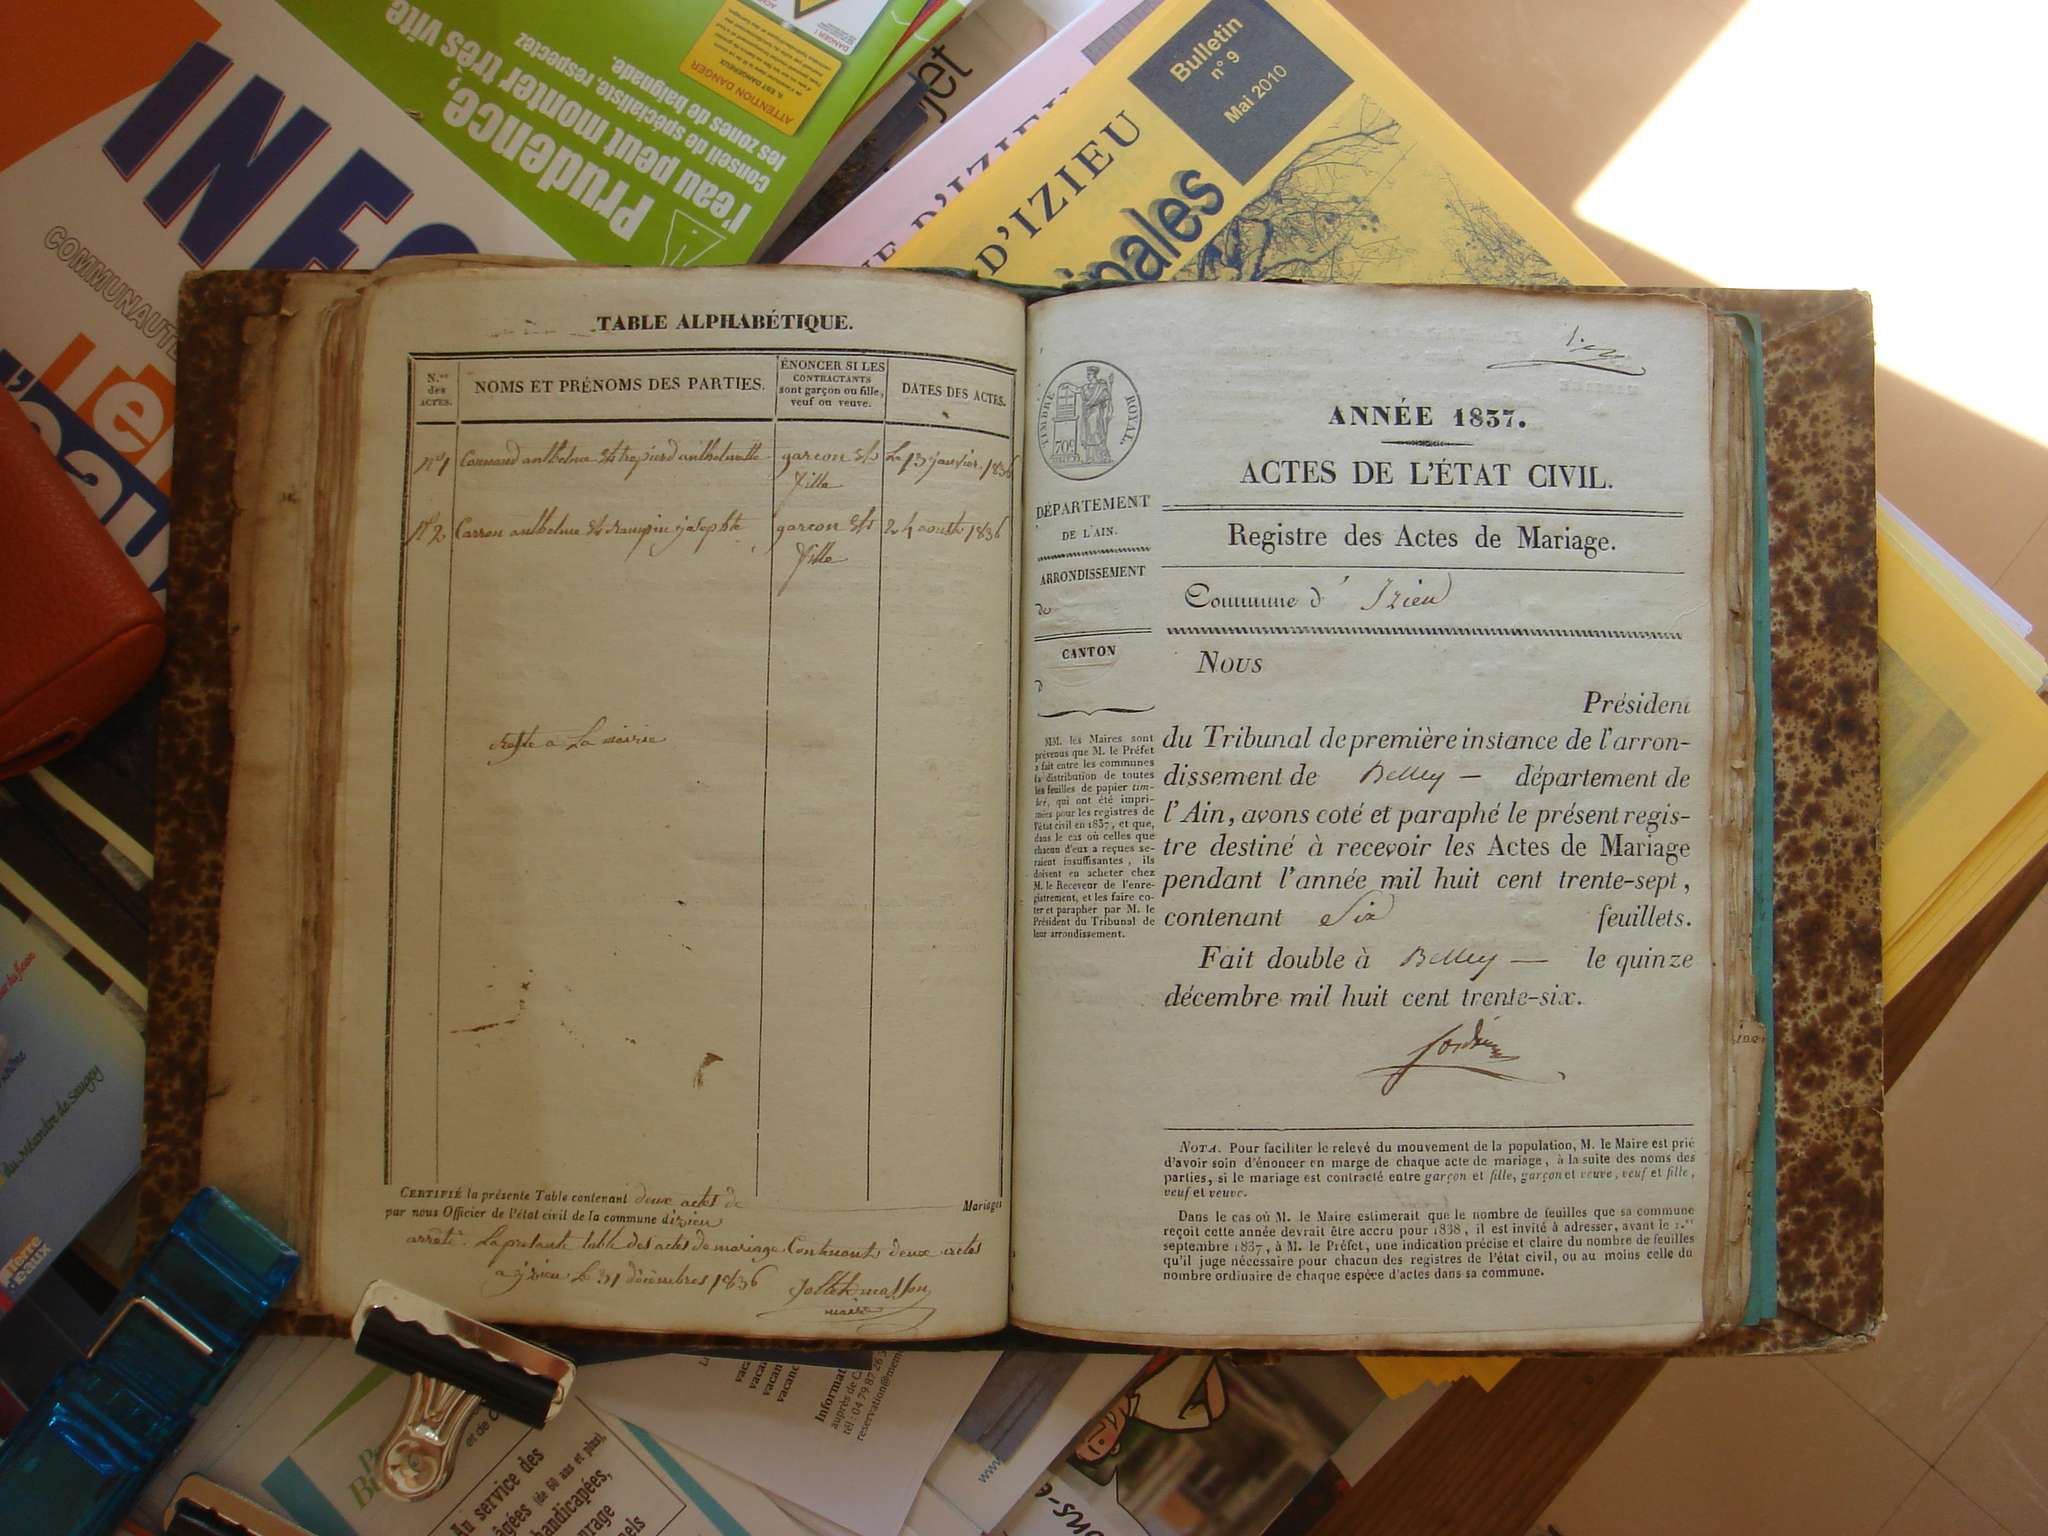 INFO
COMMUNAUTÉ
Prudence,
l'eau peut monter très vite
conseil de spécialiste, respectez
les zones de baignade.
ATTENTION DANGER
jet
Bulletin
n° 9
Mai 2010
D'IZIEU
D'IZIEU
TABLE ALPHABÉTIQUE.
N.os des ACTES.
NOMS ET PRÉNOMS DES PARTIES.
ÉNONCER SI LES
CONTRACTANTS
sont garçon ou fille,
veuf ou veuve.
DATES DES ACTES.
n° 1 anthelme anthelmette garcon et Le 13 janvier 1836
fille
n° 2 Carron anthelme et josephte garcon et 24 aoust 1836
fille
Reste a La mairie
CERTIFIÉ la présente Table contenant deux actes de Mariages
par nous Officier de l'état civil de la commune d'izieu
arrêté La presante table des actes de mariage Contenant deux actes
a izieu le 31 décembres 1836
maire
TIMBRE ROYAL.
70c
ANNÉE 1837.
ACTES DE L'ÉTAT CIVIL.
DÉPARTEMENT
DE L'AIN.
Registre des Actes de Mariage.
ARRONDISSEMENT
de
Commune d' Izieu
CANTON
d
Nous
Président
du Tribunal de première instance de l'arron-
dissement de Belley — département de
l'Ain, avons coté et paraphé le présent regis-
tre destiné à recevoir les Actes de Mariage
pendant l'année mil huit cent trente-sept,
contenant Six feuillets.
Fait double à Belley — le quinze
décembre mil huit cent trente-six.
MM. les Maires sont
prévenus que M. le Préfet
a fait entre les communes
la distribution de toutes
les feuilles de papier tim-
bré, qui ont été impri-
mées pour les registres de
l'état civil en 1837, et que,
dans le cas où celles que
chacun d'eux a reçues se-
raient insuffisantes, ils
doivent en acheter chez
M. le Receveur de l'enre-
gistrement, et les faire co-
ter et parapher par M. le
Président du Tribunal de
leur arrondissement.
NOTA. Pour faciliter le relevé du mouvement de la population, M. le Maire est prié
d'avoir soin d'énoncer en marge de chaque acte de mariage, à la suite des noms des
parties, si le mariage est contracté entre garçon et fille, garçon et veuve, veuf et fille,
veuf et veuve.
Dans le cas où M. le Maire estimerait que le nombre de feuilles que sa commune
reçoit cette année devrait être accru pour 1838, il est invité à adresser, avant le 1.er
septembre 1837, à M. le Préfet, une indication précise et claire du nombre de feuilles
qu'il juge nécessaire pour chacun des registres de l'état civil, ou au moins celle du
nombre ordinaire de chaque espèce d'actes dans sa commune.
du Méandre de Saugey
Terre
d'eaux
et de
Au service des
âgées (de 60 ans et plus),
handicapées,
vacan
vacanc
Informat
auprès de C
tél : 04 79 87 26 3
reservation@mem
www.